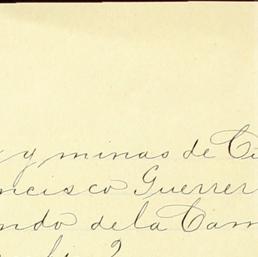 y minas de Ci
ncisco Guerrer
ndo dela Cam